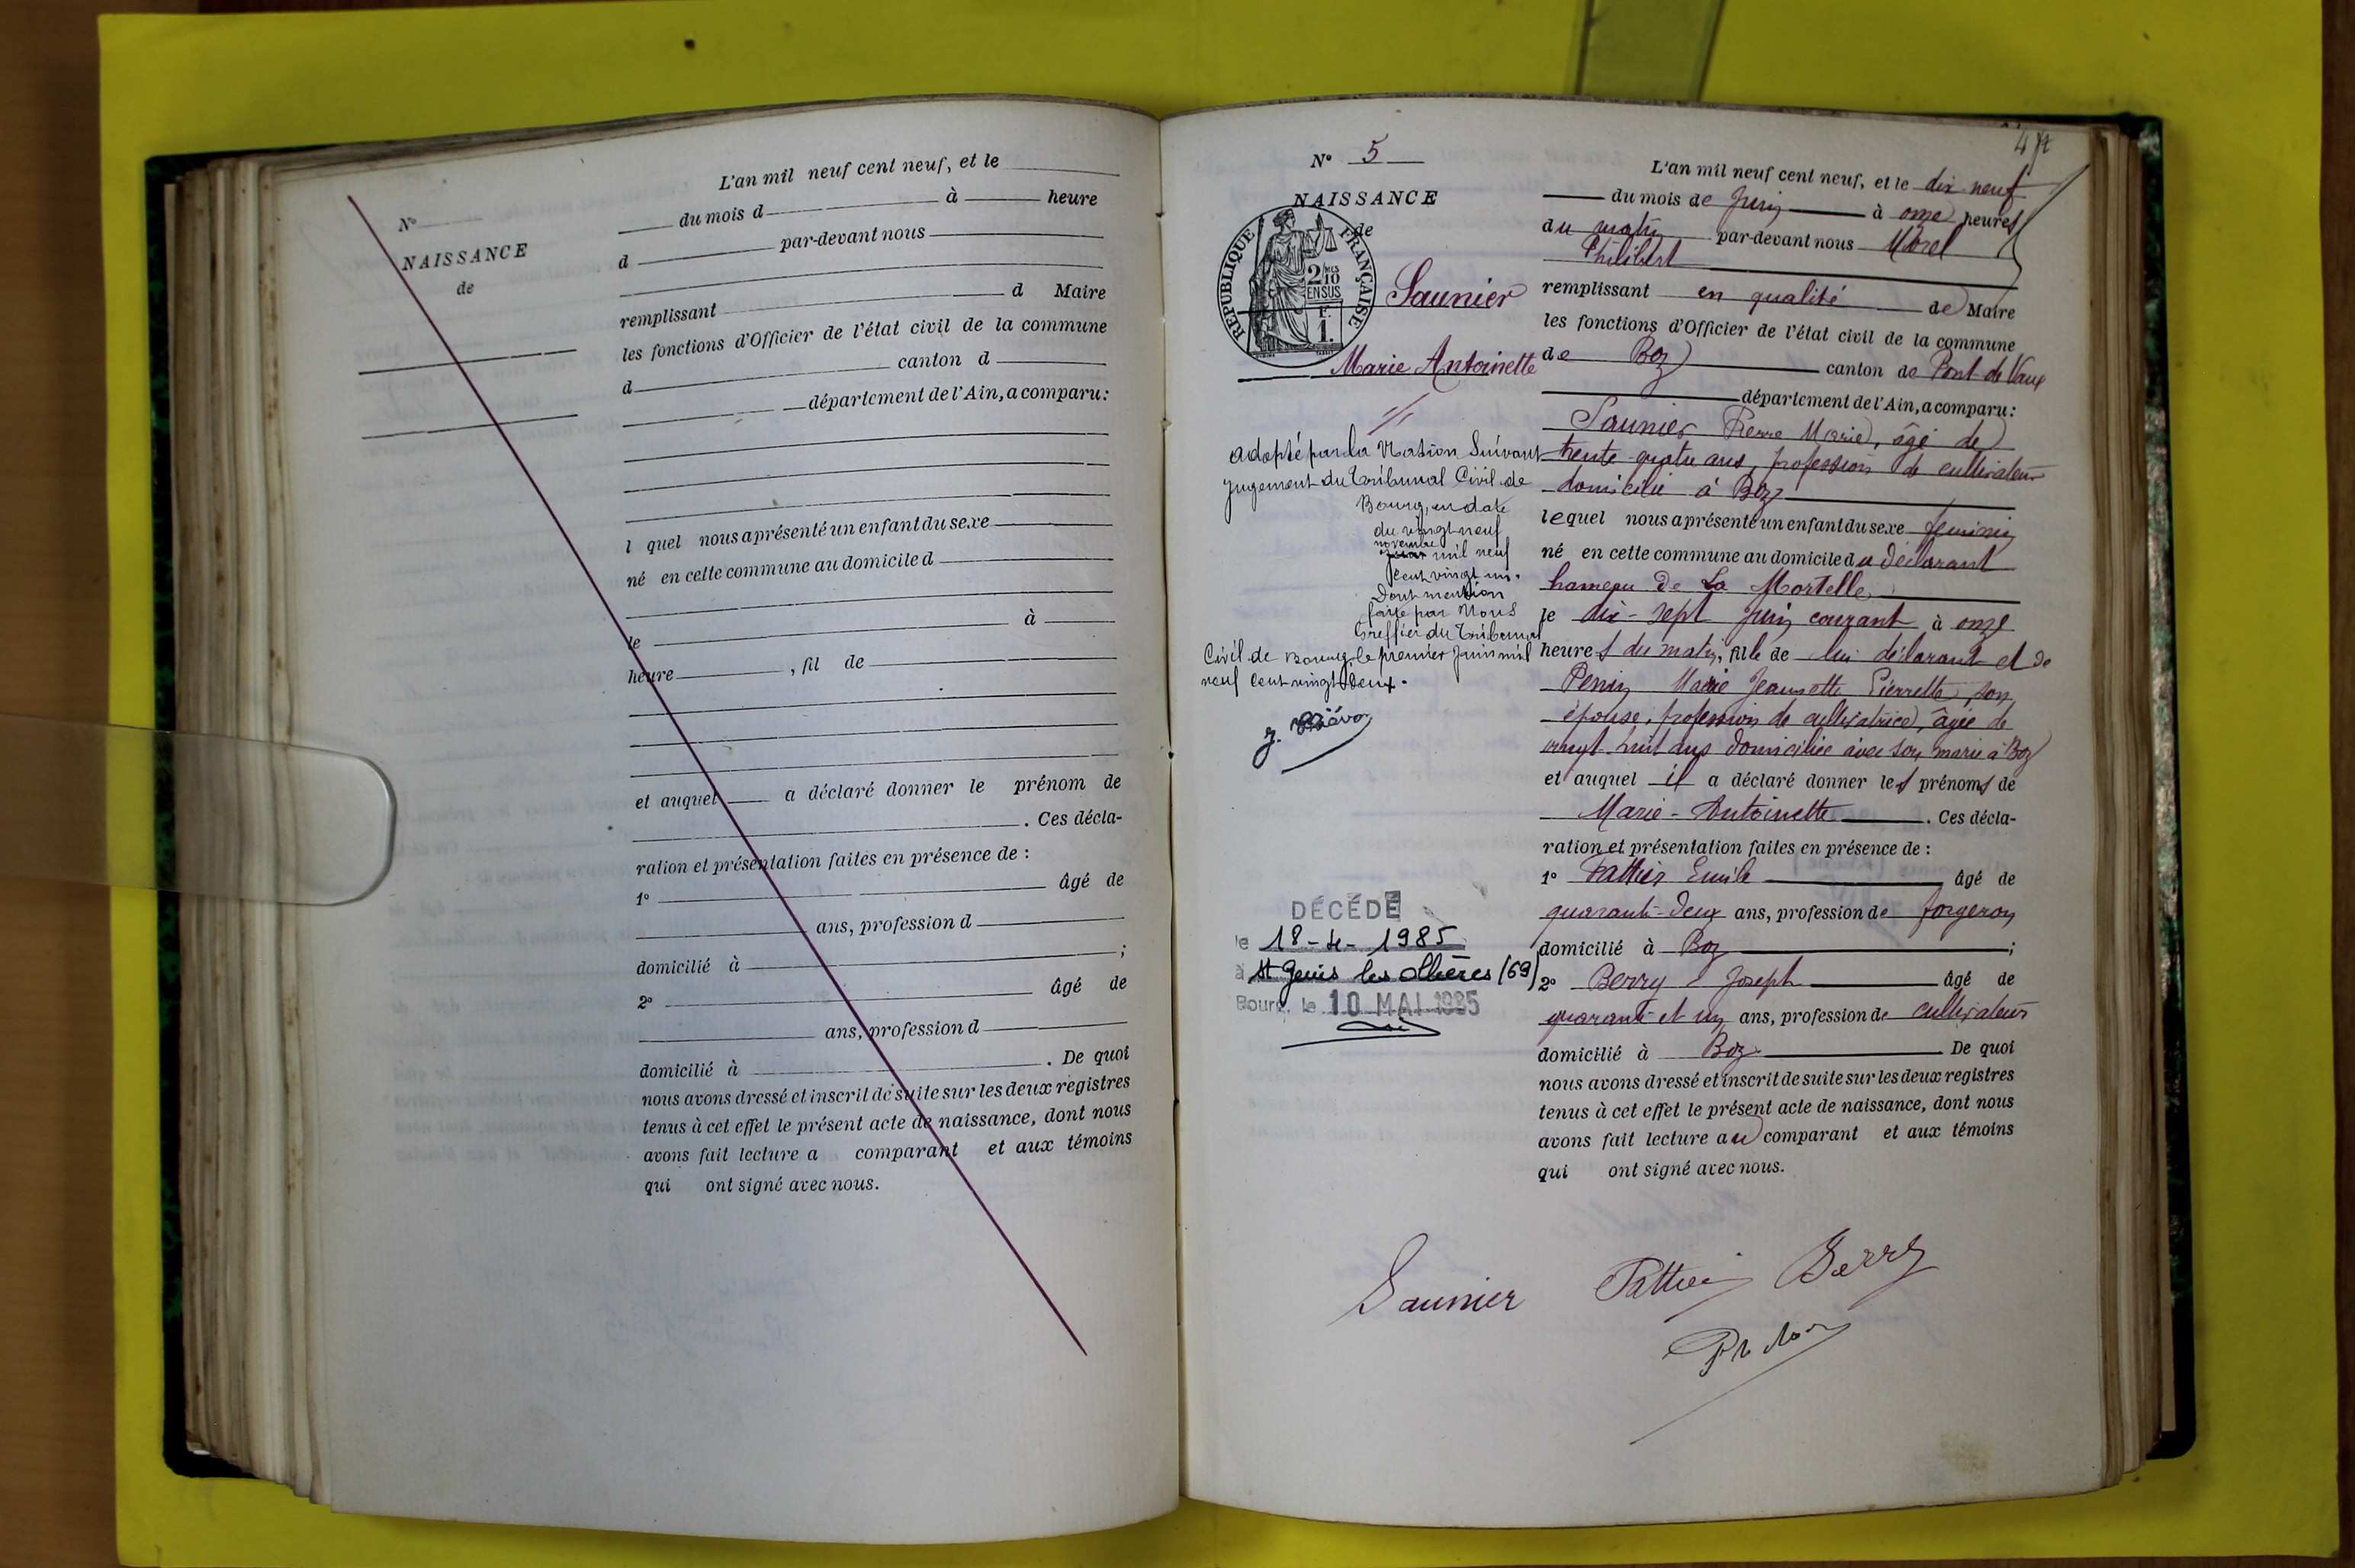 L'an mil neuf cent neuf, et le
du mois d à heure
d par-devant nous
remplissant d Maire
les fonctions d'Officier de l'état civil de la commune
d canton d
département de l'Ain, a comparu:
l quel nous a présenté un enfant du sexe
né en cette commune au domicile d
le à
heure , fil de
et auquel a déclaré donner le prénom de
. Ces décla-
ration et présentation faites en présence de :
1° âgé de
ans, profession d
domicilié à ;
2° âgé de
ans, profession d
domicilié à . De quoi
nous avons dressé et inscrit de suite sur les deux registres
tenus à cet effet le présent acte de naissance, dont nous
avons fait lecture a comparant et aux témoins
qui ont signé avec nous.
N°
NAISSANCE
de
N° 5
NAISSANCE
de
RÉPUBLIQUE FRANÇAISE
2/10 EN SUS
F. 1.
Saunier
Marie Antoinette
adopté par la Nation Suivant
jugement du Tribunal Civil de
Bourg, en date
du vingt neuf
novembre
mil neuf
cent vingt un.
Dont mention
faite par Nous
Greffier du Tribunal
Civil de Bourg, le premier Juin mil
neuf cent vingt deux.
DÉCÉDÉ
le 18-4-1985
à St Genis les Ollières (69)
Bourg, le 10 MAI 1985
L'an mil neuf cent neuf, et le dix neuf
du mois de Juin à onze heures
du matin par-devant nous Morel
Philibert
remplissant en qualité de Maire
les fonctions d'Officier de l'état civil de la commune
de Boz canton de Pont-de-Vaux
département de l'Ain, a comparu:
Saunier Pierre Marie, âgé de
trente-quatre ans, profession de cultivateur
domicilié à Boz
lequel nous a présenté un enfant du sexe féminin
né en cette commune au domicile du déclarant
hameau de La Mortelle
le dix-sept Juin courant à onze
heures du matin, fille de lui déclarant et de
Penin Marie Jeannette Pierrette, son
épouse, profession de cultivatrice, âgée de
vingt-huit ans domiciliée avec son marie à Boz
et auquel il a déclaré donner les prénoms de
Marie-Antoinette . Ces décla-
ration et présentation faites en présence de :
1° Pattier Emile âgé de
quarante-deux ans, profession de forgeron
domicilié à Boz ;
2° Berry Joseph âgé de
quarante et un ans, profession de cultivateur
domicilié à Boz . De quoi
nous avons dressé et inscrit de suite sur les deux registres
tenus à cet effet le présent acte de naissance, dont nous
avons fait lecture au comparant et aux témoins
qui ont signé avec nous.
Saunier Berry